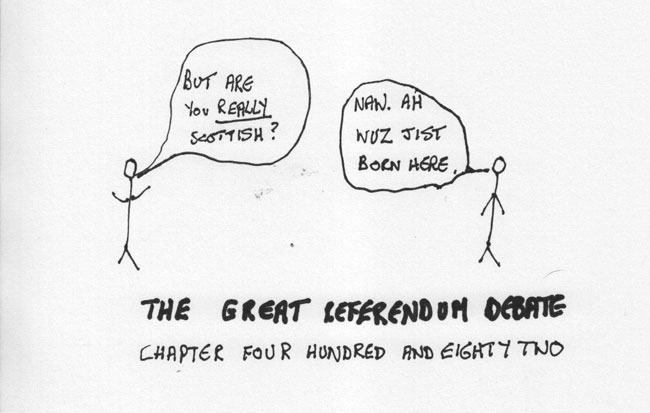 BUT ARE
YOU REALLY
SCOTTISH?
NAW. AH
WUZ JIST
BORN HERE.
THE GREAT REFERENDUM DEBATE
CHAPTER FOUR HUNDRED AND EIGHTY TWO